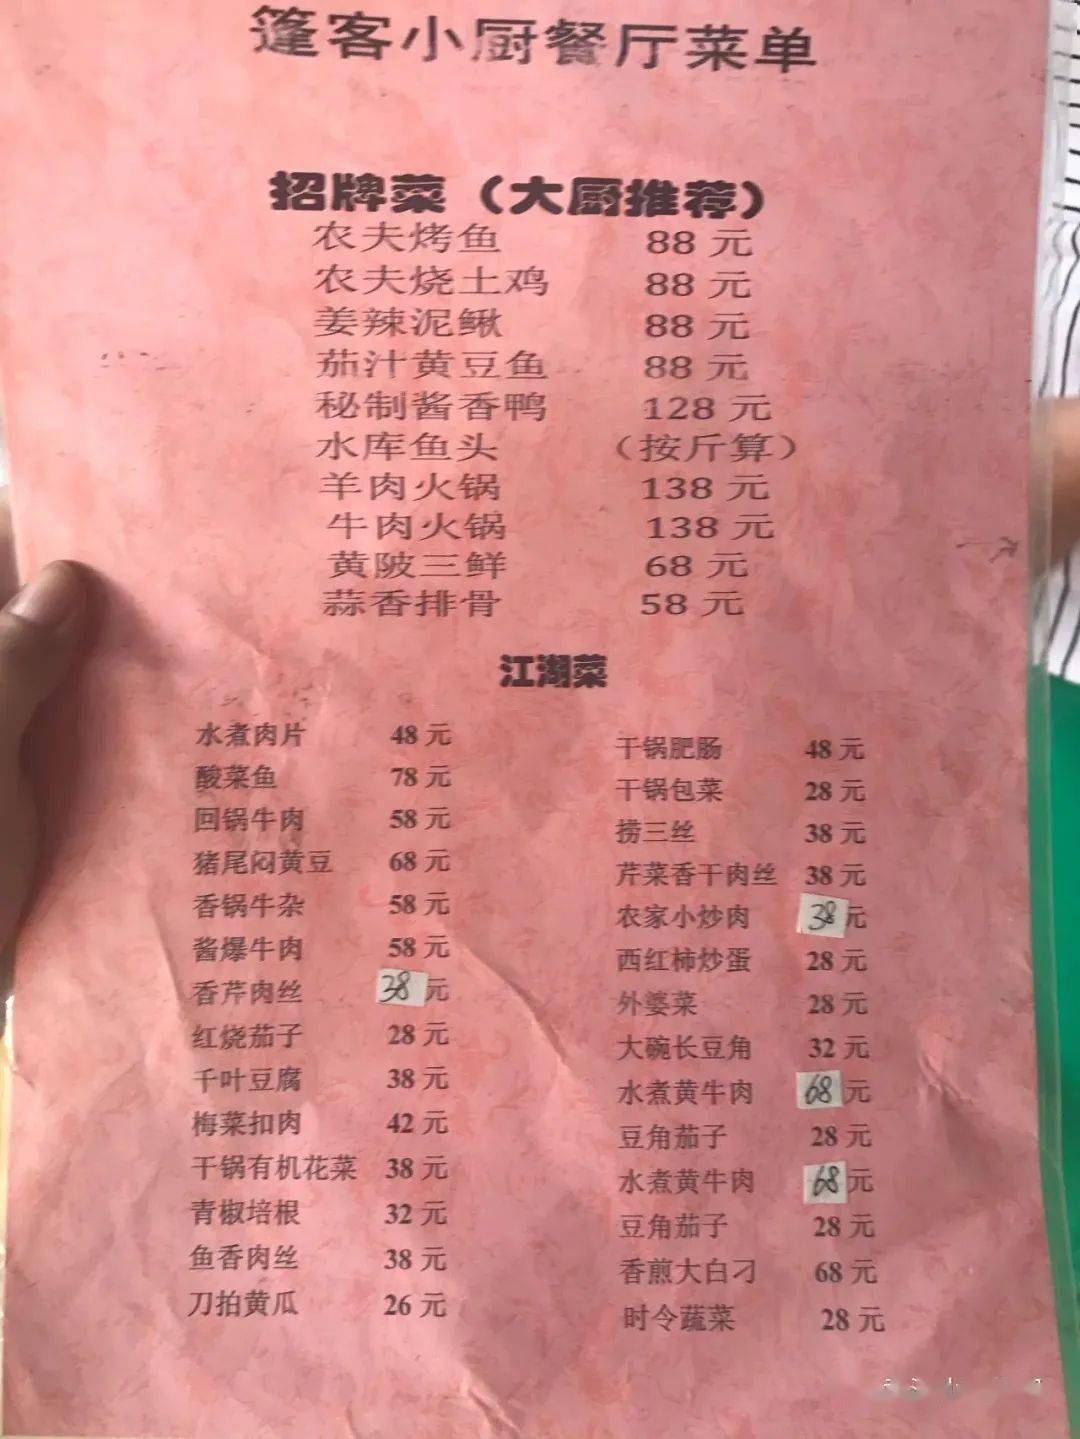 篷客小厨餐厅菜单
招牌菜（大厨推荐）
农夫烤鱼 88 元
农夫烧土鸡 88 元
姜辣泥鳅 88 元
茄汁黄豆鱼 88 元
秘制酱香鸭 128 元
水库鱼头 （按斤算）
羊肉火锅 138 元
牛肉火锅 138 元
黄陂三鲜 68 元
蒜香排骨 58 元
江湖菜
水煮肉片 48 元
酸菜鱼 78 元
回锅牛肉 58 元
猪尾闷黄豆 68 元
香锅牛杂 58 元
酱爆牛肉 58 元
香芹肉丝 38 元
红烧茄子 28 元
千叶豆腐 38 元
梅菜扣肉 42 元
干锅有机花菜 38 元
青椒培根 32 元
鱼香肉丝 38 元
刀拍黄瓜 26 元
干锅肥肠 48 元
干锅包菜 28 元
捞三丝 38 元
芹菜香干肉丝 38 元
农家小炒肉 38 元
西红柿炒蛋 28 元
外婆菜 28 元
大碗长豆角 32 元
水煮黄牛肉 68 元
豆角茄子 28 元
水煮黄牛肉 68 元
豆角茄子 28 元
香煎大白刁 68 元
时令蔬菜 28 元